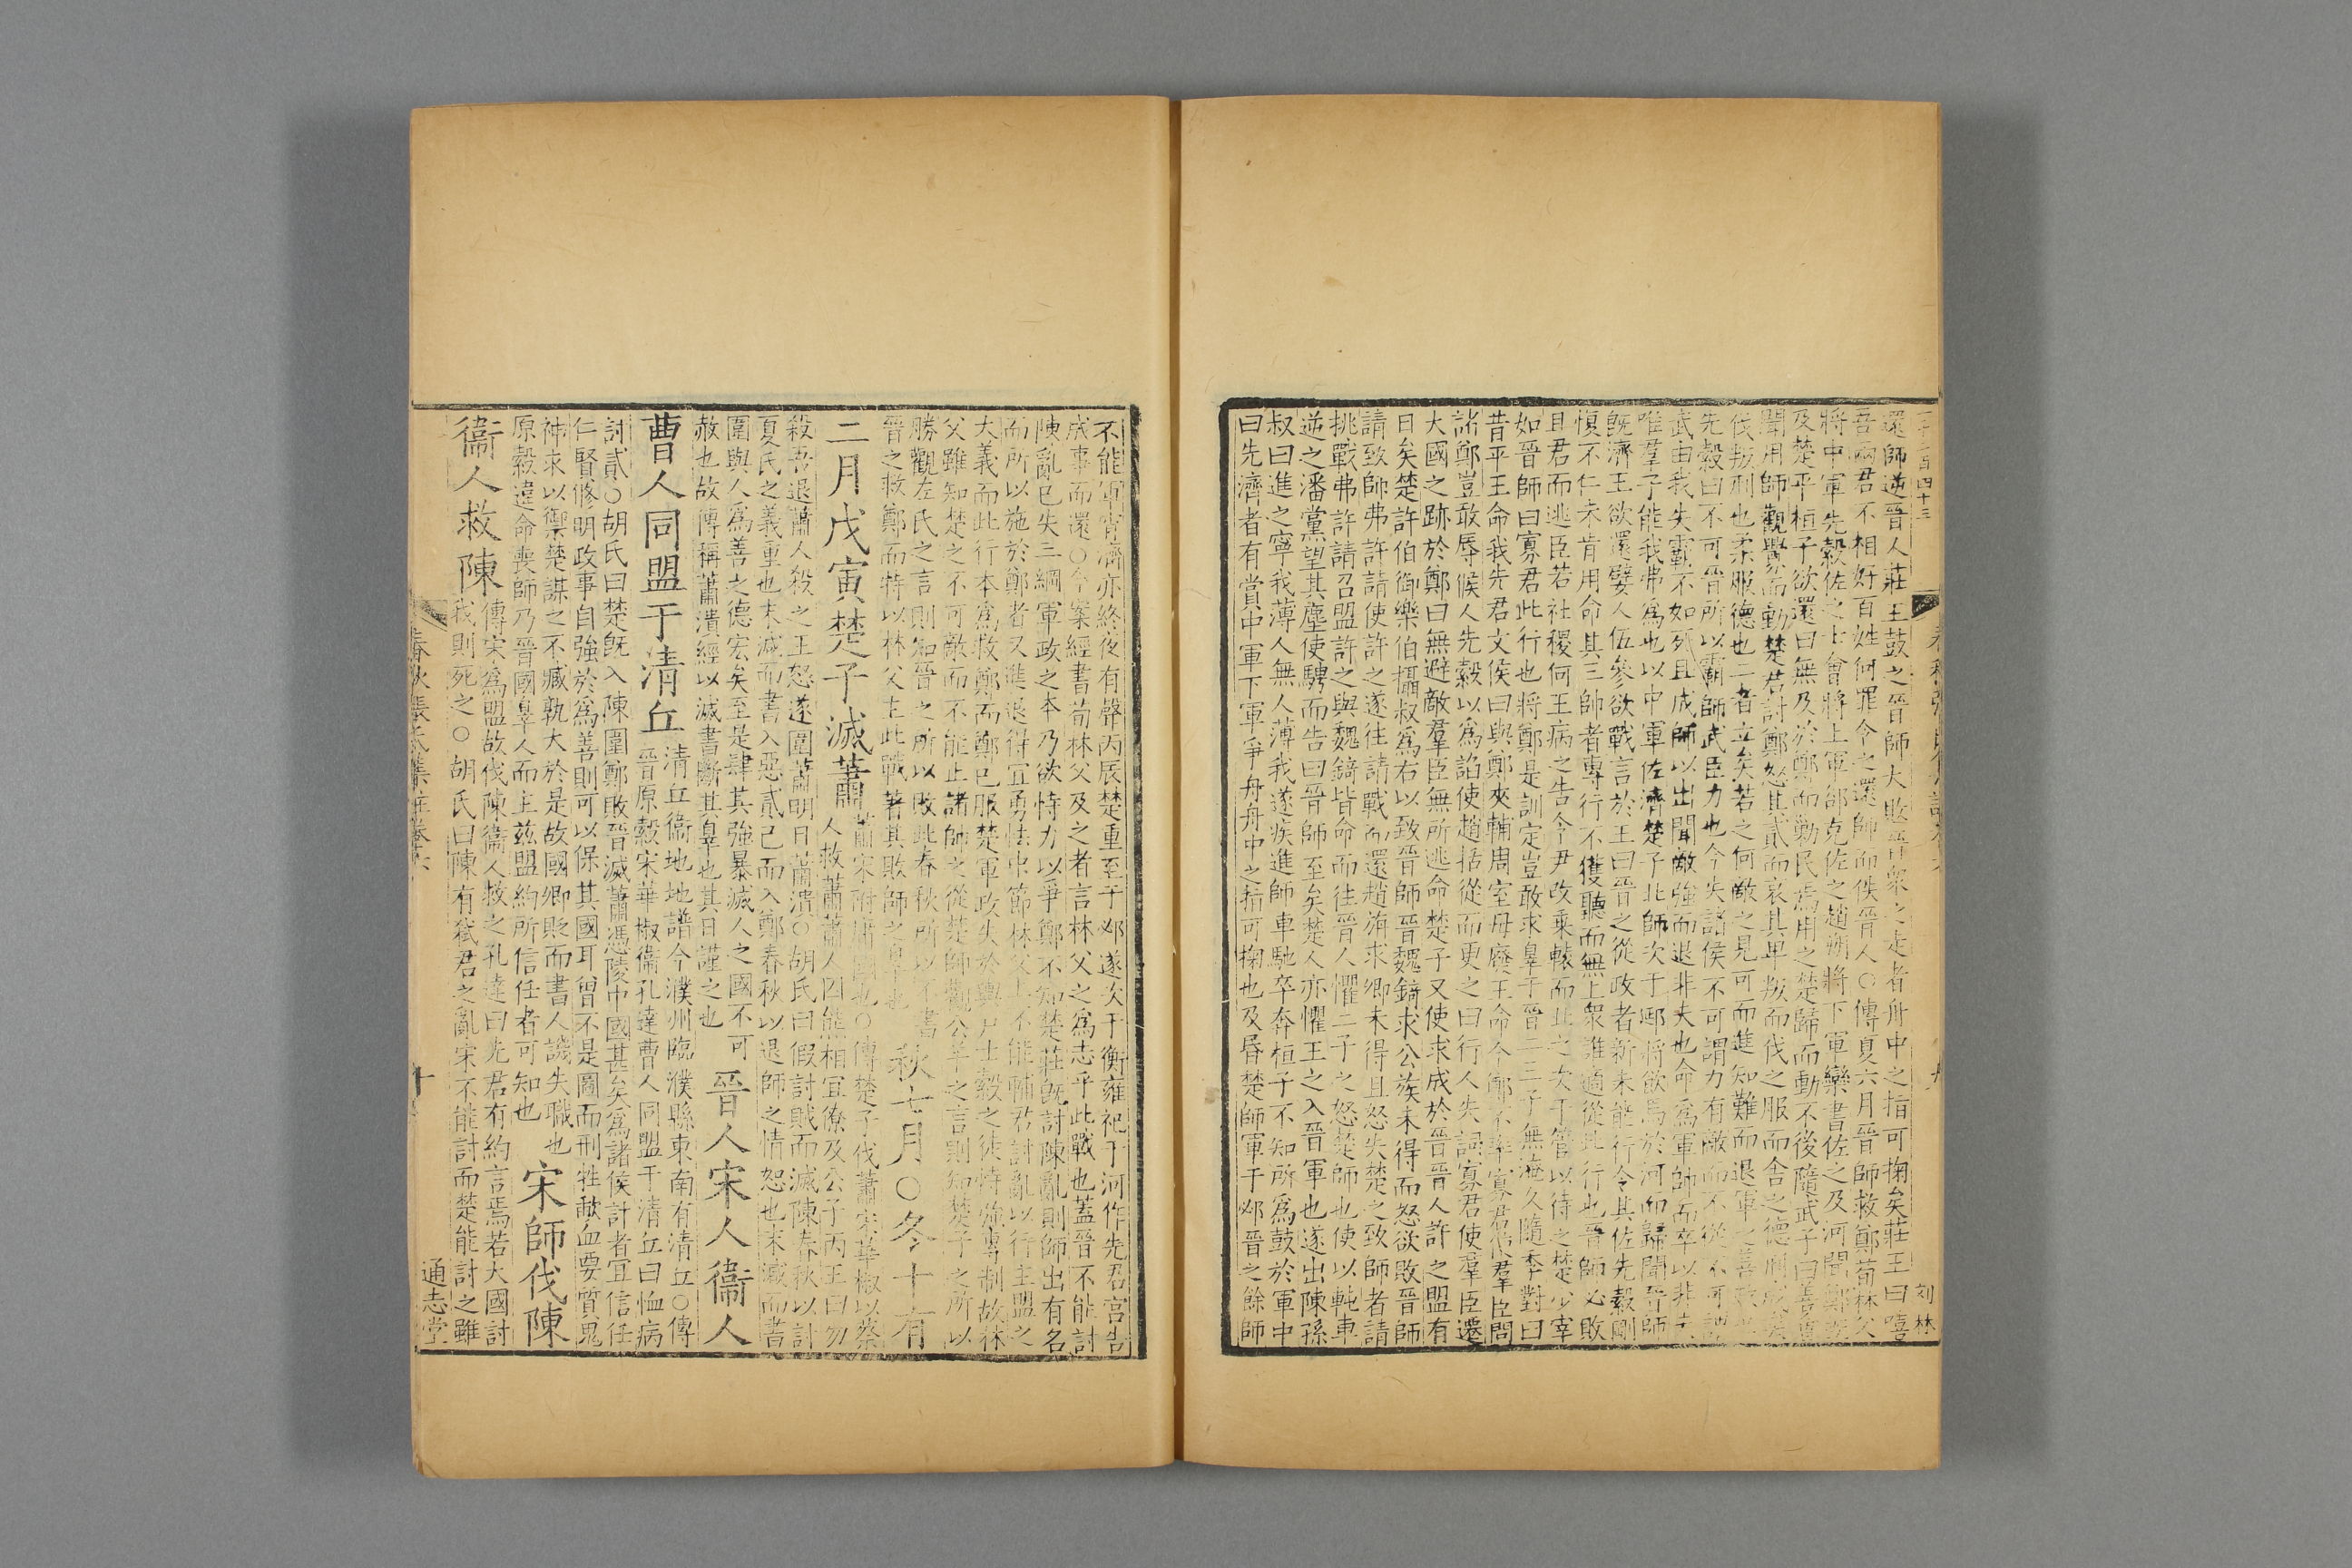 還師逆晉人莊王鼓之晉師大敗晉衆之走者舟中之指可掬矣莊王曰嘻
吾兩君不相好百姓何罪令之還師而佚晉人○傳夏六月晉師救鄭荀林父
將中軍先縠佐之士會將上軍郤克佐之趙朔將下軍欒書佐之及河聞鄭既
及楚平桓子欲還曰無及於鄭而勦民焉用之楚歸而動不後隨武子曰善會
聞用師觀釁而動楚君討鄭怒其貳而哀其卑叛而伐之服而舍之德刑成矣
伐叛刑也柔服德也二者立矣若之何敵之見可而進知難而退軍之善政也
先縠曰不可晉所以霸師武臣力也今失諸侯不可謂力有敵而不從不可謂
武由我失霸不如死且成師以出聞敵強而退非夫也命爲軍帥而卒以非夫
唯羣子能我弗爲也以中軍佐濟楚子北師次于郔將飲馬於河而歸聞晉師
既濟王欲還嬖人伍參欲戰言於王曰晉之從政者新未能行令其佐先縠剛
愎不仁未肯用命其三帥者專行不獲聽而無上衆誰適從此行也晉師必敗
且君而逃臣若社稷何王病之告令尹改乗轅而北之次于管以待之楚少宰
如晉師曰寡君此行也將鄭是訓定豈敢求辠于晉二三子無淹久隨季對曰
昔平王命我先君文侯曰與鄭夾輔周室毋廢王命今鄭不率寡君使羣臣問
諸鄭豈敢辱候人先縠以爲諂使趙括從而更之曰行人失詞寡君使羣臣遷
大國之跡於鄭曰無避敵羣臣無所逃命楚子又使求成於晉晉人許之盟有
日矣楚許伯御樂伯攝叔爲右以致晉師晉魏錡求公族未得而怒欲敗晉師
請致師弗許請使許之遂往請戰而還趙旃求卿未得且怒失楚之致師者請
挑戰弗許請召盟許之與魏錡皆命而往晉人懼二子之怒楚師也使以軘車
逆之潘黨望其塵使騁而告曰晉師至矣楚人亦懼王之入晉軍也遂出陳孫
叔曰進之寧我薄人無人薄我遂疾進師車馳卒奔桓子不知所爲鼓於軍中
曰先濟者有賞中軍下軍爭舟舟中之指可掬也及昬楚師軍于邲晉之餘師
不能軍宵濟亦終夜有聲丙辰楚重至于邲遂次于衡雍祀于河作先君宮告
成事而還○今案經書荀林父及之者言林父之爲志乎此戰也蓋晉不能討
陳亂已失三綱軍政之本乃欲恃力以爭鄭不知楚莊既討陳亂則師出有名
而所以施於鄭者又進退得宜勇怯中節林父上不能輔君討亂以行主盟之
大義而此行本爲救鄭而鄭已服楚軍政失於輿尸士縠之徒恃強專制故林
父雖知楚之不可敵而不能止諸帥之從楚師觀公羊之言則知楚子之所以
勝觀左氏之言則知晉之所以敗此春秋所以不書
晉之救鄭而特以林父主此戰著其敗師之辠也
秋七月○冬十有
二月戊寅楚子滅蕭
蕭宋附庸國也○傳楚子伐蕭宋華椒以蔡
人救蕭蕭人囚熊相宜僚及公子丙王曰勿
殺吾退蕭人殺之王怒遂圍蕭明日蕭潰○胡氏曰假討賊而滅陳春秋以討
夏氏之義重也末減而書入惡貳己而入鄭春秋以退師之情恕也末減而書
圍與人爲善之德宏矣至是肆其強暴滅人之國不可
赦也故傳稱蕭潰經以滅書斷其辠也其日謹之也
晉人宋人衞人
曹人同盟于清丘
清丘衞地地譜今濮州臨濮縣東南有清丘○傳
晉原縠宋華椒衞孔達曹人同盟于清丘曰恤病
討貳○胡氏曰楚既入陳圍鄭敗晉滅蕭憑陵中國甚矣爲諸侯計者宜信任
仁賢脩明政事自強於爲善則可以保其國耳曾不是圖而刑牲㰱血要質鬼
神求以禦楚謀之不臧孰大於是故國卿貶而書人譏失職也
原縠違命喪師乃晉國辠人而主兹盟約所信任者可知也
宋師伐陳
衞人救陳
傳宋爲盟故伐陳衞人救之孔達曰先君有約言焉若大國討
我則死之○胡氏曰陳有弑君之亂宋不能討而楚能討之雖
春秋張氏集註卷六
十
通志堂